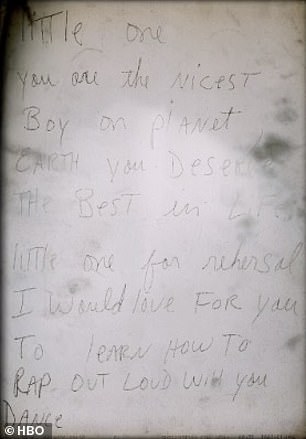 little one
you are the nicest
Boy on planet
EARTH you Deserve
THE Best in L.F.
little one for rehersal
I would love FOR you
To learn How To
RAP out Loud will you
Dance
© HBO